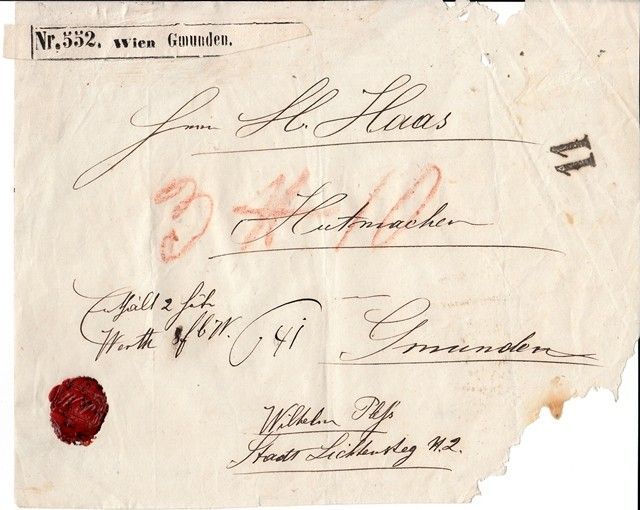 Nr. 552. Wien Gmunden.
Herrn H. Haas
11
3 10
Hutmacher
Enthält 2 Hüte
Werth 8 f b W.
41
Gmunden
Wilhelm
Stadt Lichtensteg N. 2.